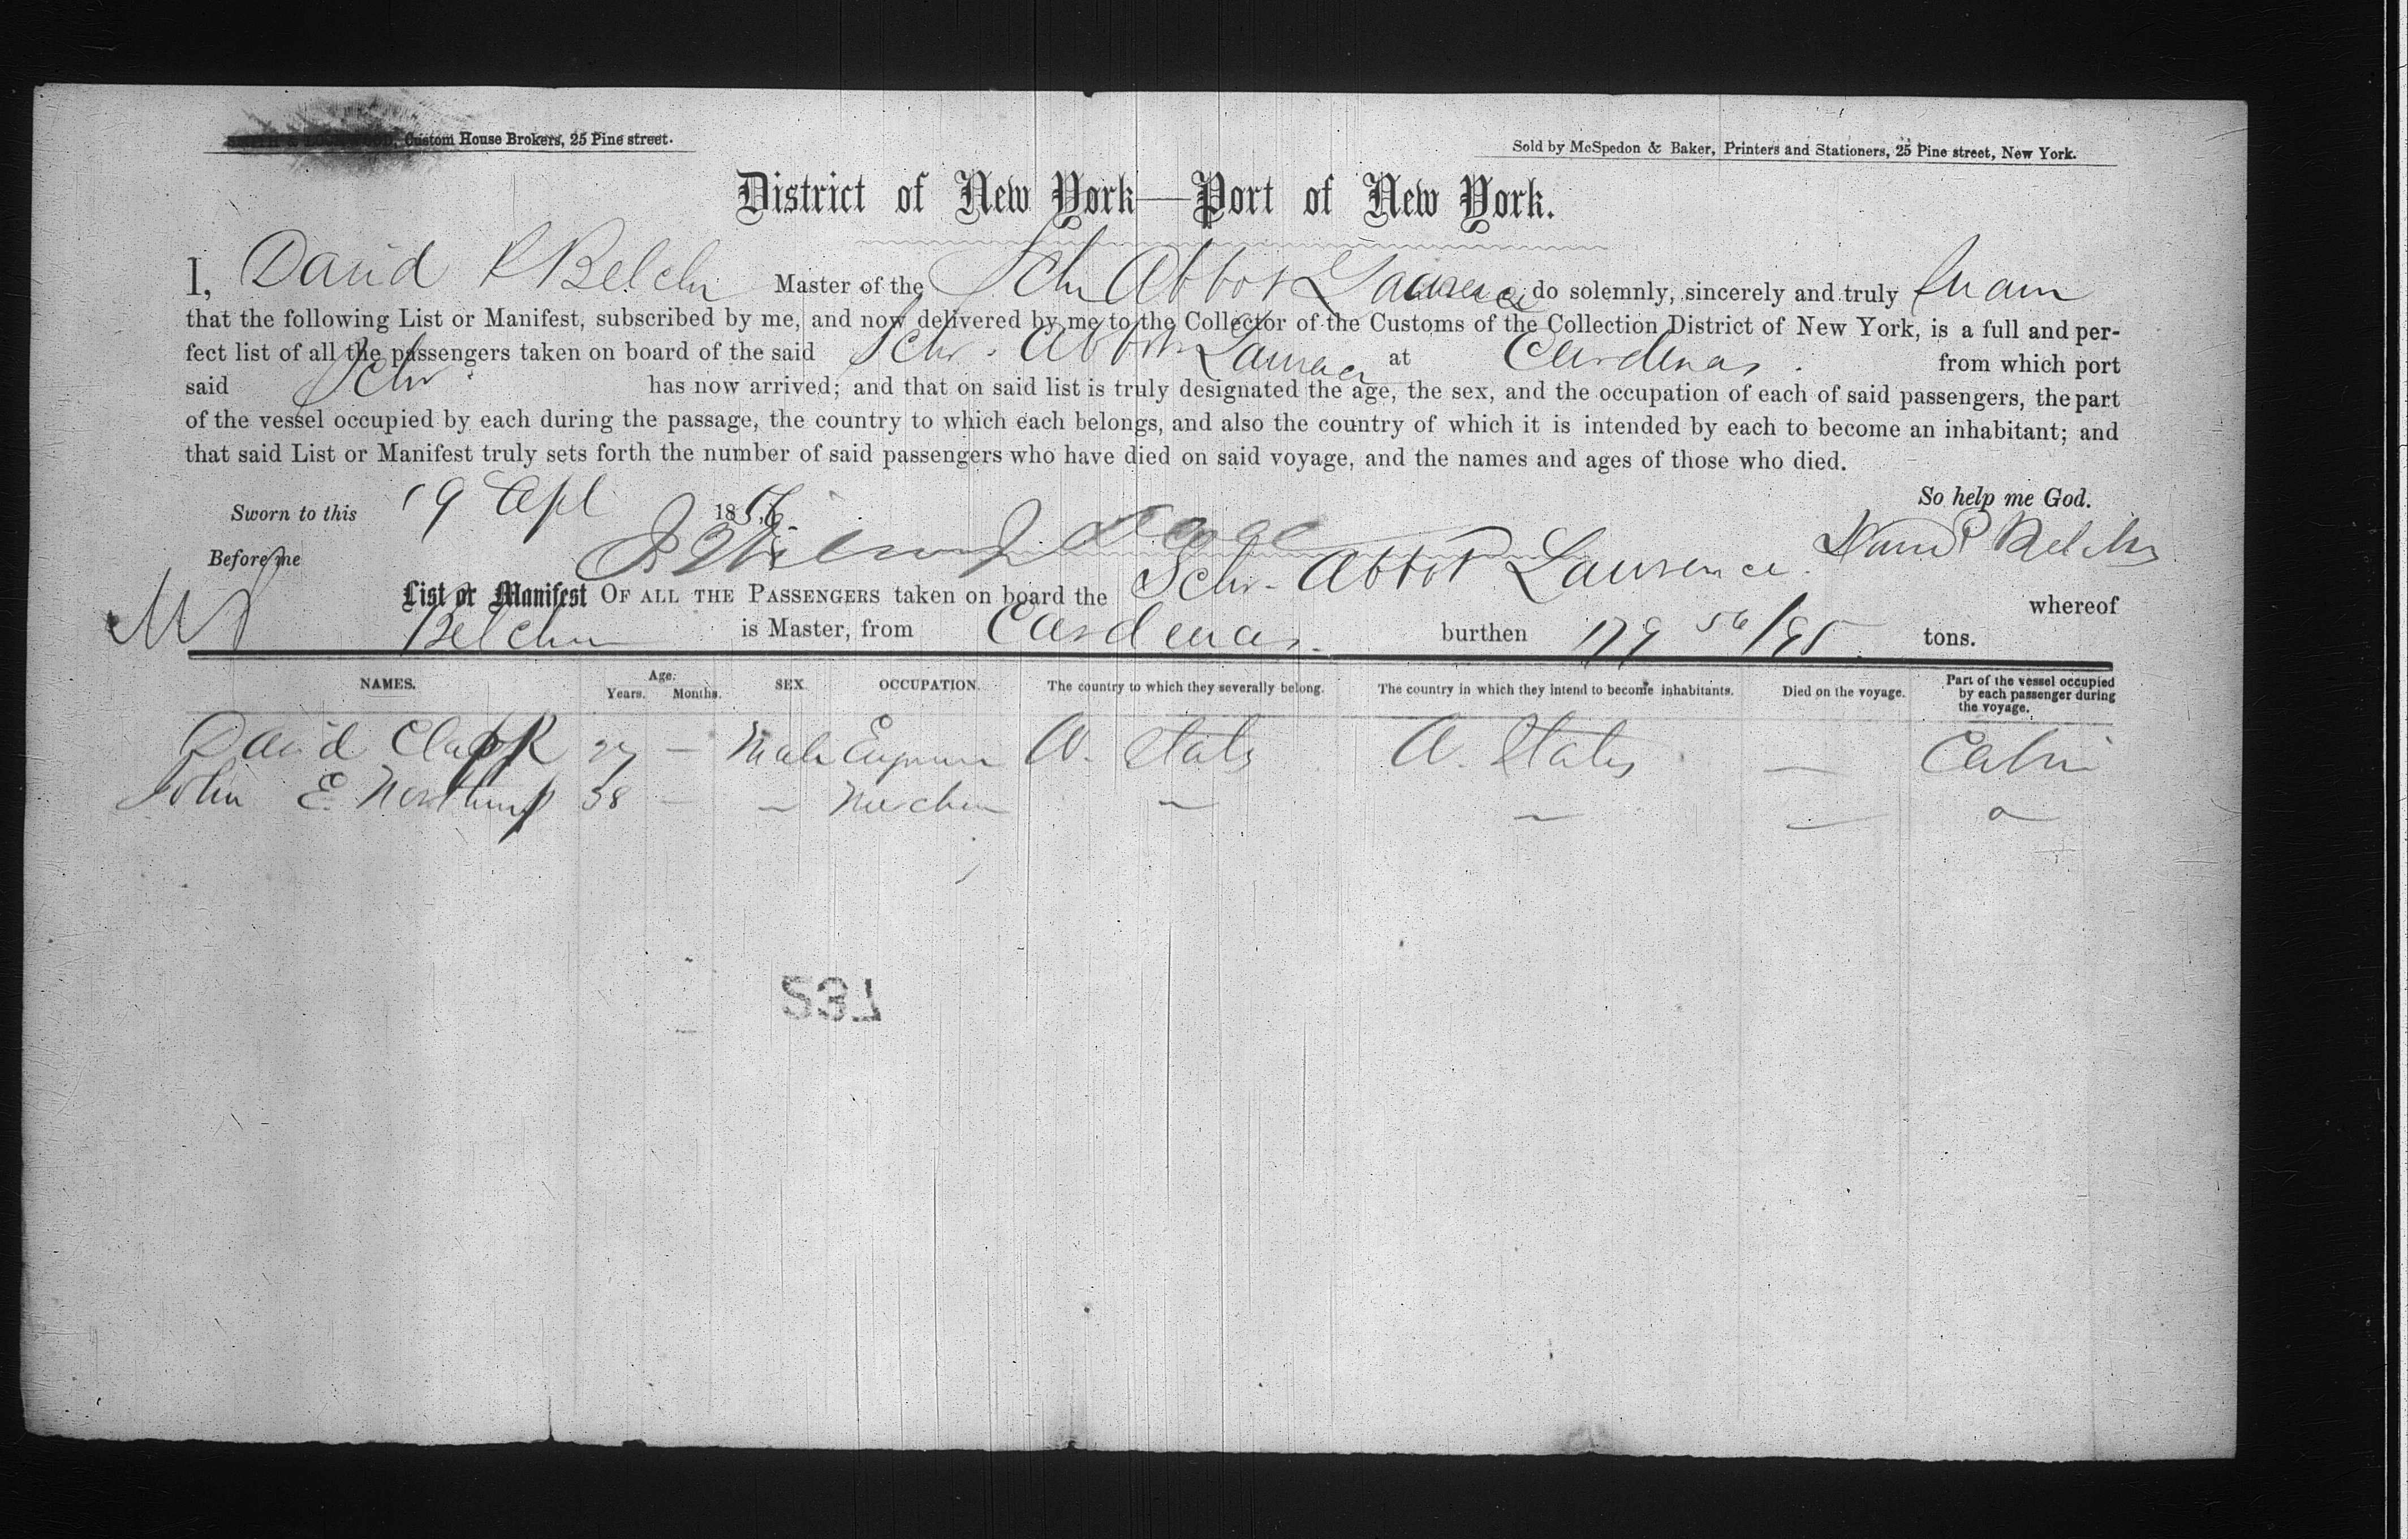 Custom House Brokers, 25 Pine street.
Sold by McSpedon & Baker, Printers and Stationers, 25 Pine street, New York.
District of New York—Port of New York.
I, David P Belcher Master of the Schr Abbot Lawrence do solemnly, sincerely and truly swear
that the following List or Manifest, subscribed by me, and now delivered by me to the Collector of the Customs of the Collection District of New York, is a full and per-
fect list of all the passengers taken on board of the said Schr. Abbot Lawrence at Cardenas. from which port
said Schr has now arrived; and that on said list is truly designated the age, the sex, and the occupation of each of said passengers, the part
of the vessel occupied by each during the passage, the country to which each belongs, and also the country of which it is intended by each to become an inhabitant; and
that said List or Manifest truly sets forth the number of said passengers who have died on said voyage, and the names and ages of those who died.
So help me God.
Sworn to this 19 Apl 1856
Before me
David P Belcher
List or Manifest OF ALL THE PASSENGERS taken on board the Schr. Abbot Lawrence. whereof
Belcher is Master, from Cardenas. burthen 179 56/95 tons.
NAMES. Age. Years. Months. SEX. OCCUPATION. The country to which they severally belong. The country in which they intend to become inhabitants. Died on the voyage. Part of the vessel occupied by each passenger during the voyage.
David Clapp 27 — Male Engineer U. States U. States — Cabin
John E. Northrup 38 — — — — —
537